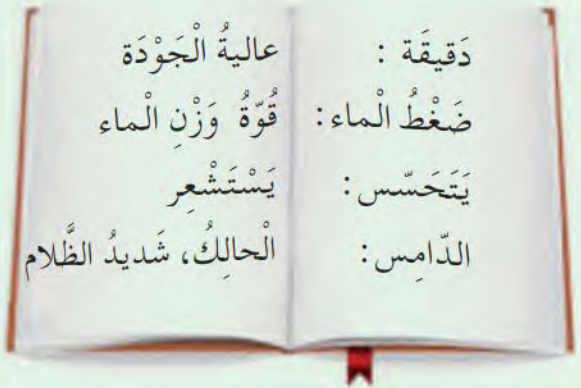 دَقيقَة : عاليةُ الْجَوْدَة
ضَغْطُ الْماء : قُوّةُ وَزْنِ الْماء
يَتَحَسّس : يَسْتَشْعِر
الدّامِس : الْحالِكُ، شَديدُ الظَّلام